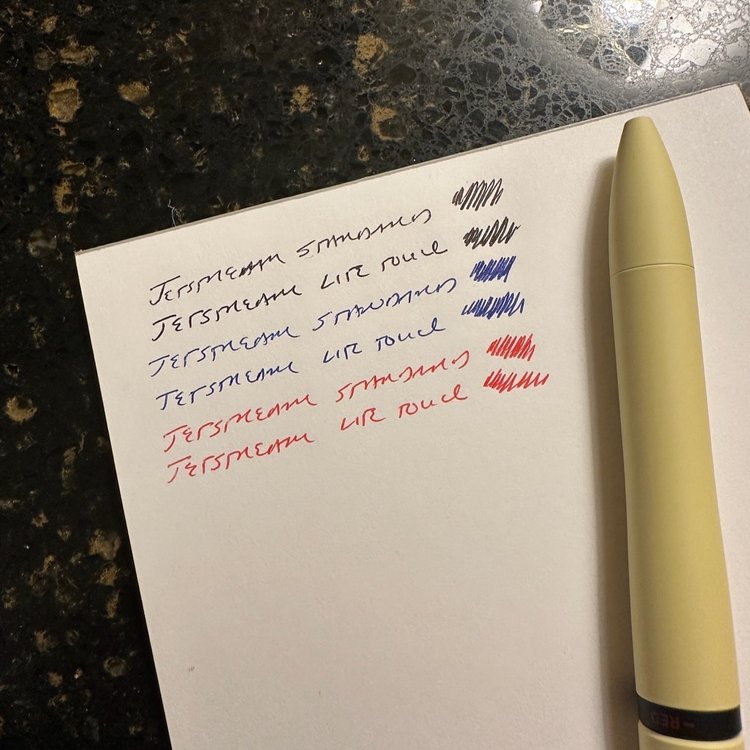 JETSTREAM STANDARD
JETSTREAM LITE TOUCH
JETSTREAM STANDARD
JETSTREAM LITE TOUCH
JETSTREAM STANDARD
JETSTREAM LITE TOUCH
RED